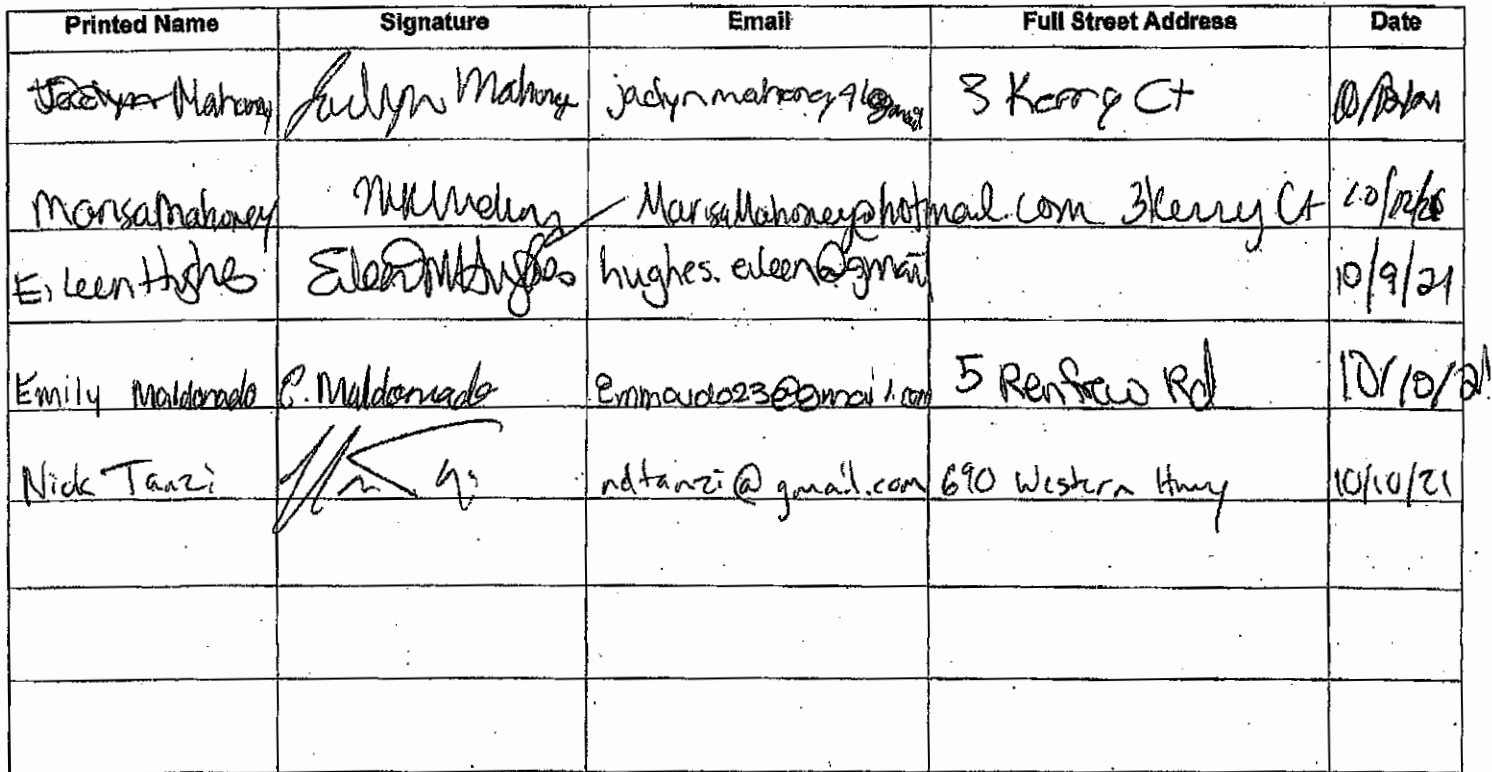 Printed Name Signature Email Full Street Address Date
Jaclyn Mahoney Jaclyn Mahoney 3 Kerry Ct
Marisa Mahoney MarisaMahoney@hotmail.com 3 Kerry Ct
Eileen Hughes Eileen M Hughes hughes.eileen@gmail 10/9/21
Emily Maldonado E. Maldonado 5 Renfrew Rd 10/10/21
Nick Tanzi ndtanzi@gmail.com 690 Western Hwy 10/10/21